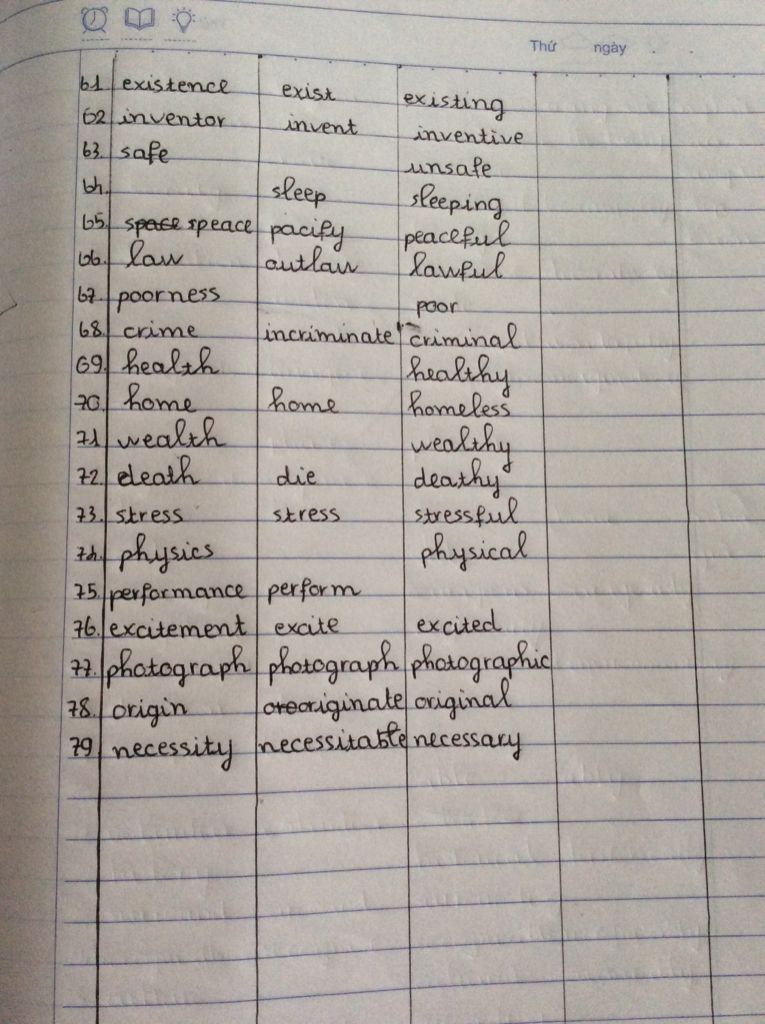 Thứ ngày
61 existence exist existing
62 inventor invent inventive
63. safe unsafe
64. sleep sleeping
65. space speace pacify peaceful
66. law outlaw lawful
67. poorness poor
68. crime incriminate criminal
69. health healthy
70. home home homeless
71 wealth wealthy
72. death die deathy
73. stress stress stressful
74. physics physical
75. performance perform
76. excitement excite excited
77. photograph photograph photographic
78. origin oreoriginate original
79 necessity necessitable necessary